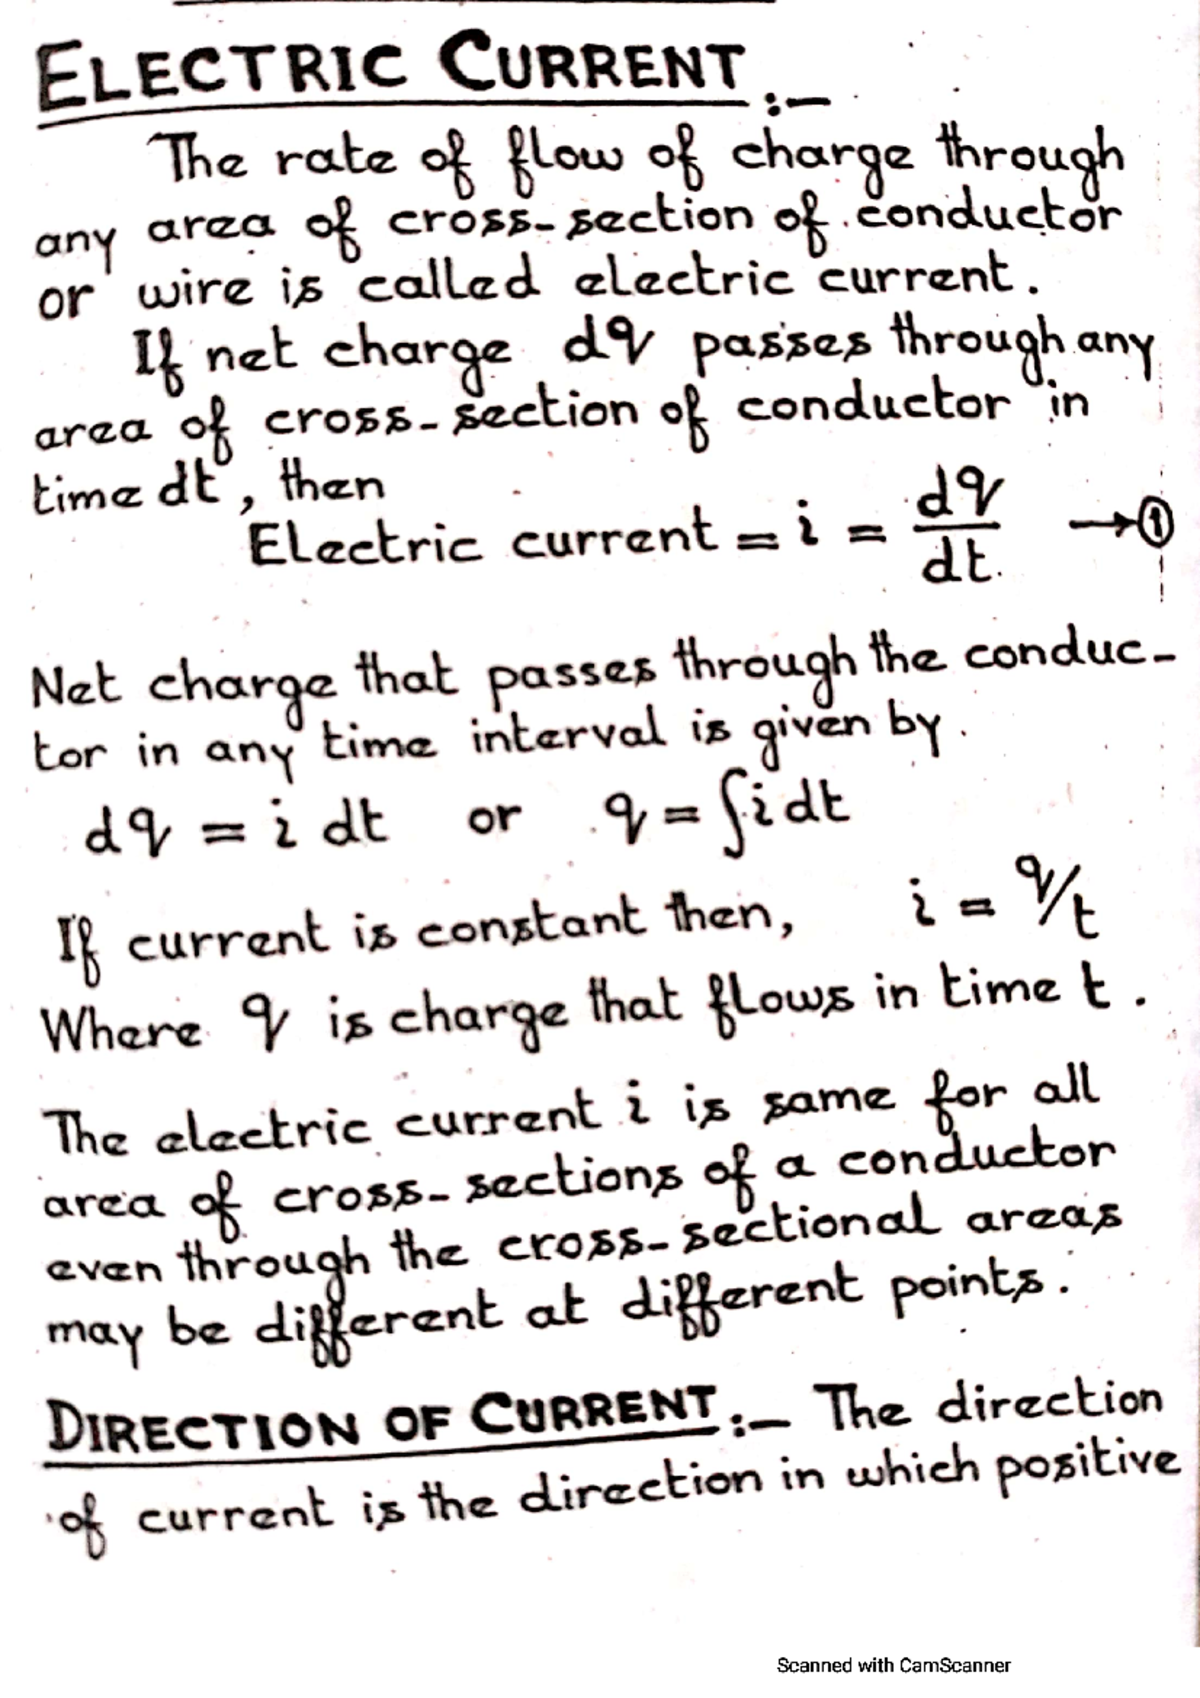 ELECTRIC CURRENT :-
The rate of flow of charge through
any area of cross-section of conductor
or wire is called electric current.
If net charge dq passes through any
area of cross-section of conductor in
time dt, then
Electric current = i = dq/dt → ①
Net charge that passes through the conduc-
tor in any time interval is given by.
dq = i dt or q = ∫i dt
If current is constant then, i = q/t
Where q is charge that flows in time t.
The electric current i is same for all
area of cross-sections of a conductor
even through the cross-sectional areas
may be different at different points.
DIRECTION OF CURRENT :- The direction
of current is the direction in which positive
Scanned with CamScanner